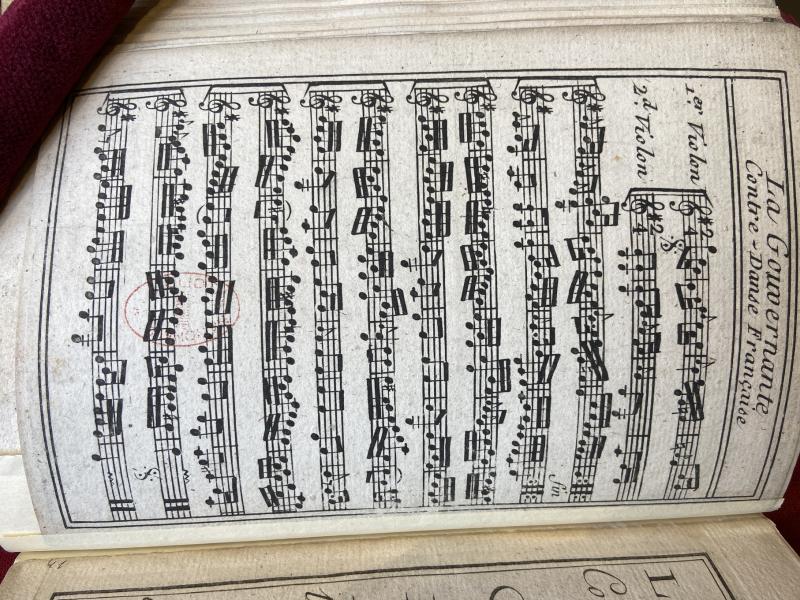 La Gouvernante
Contre-Danse Française
1.er Violon
2.d Violon
2
4
2
4
fin